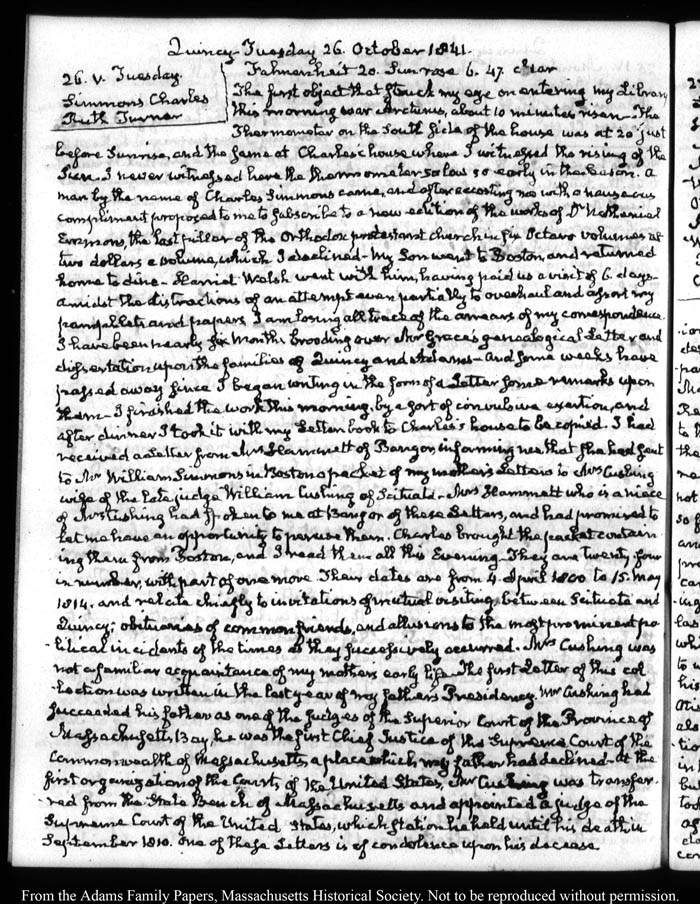 Quincy Tuesday 26. October 1841.
26. V. Tuesday.
Simmons Charles
Ruth Turner
Fahrenheit 20. Sun rose 6. 47. clear
The first object that struck my eye on entering my Library
this morning was Arcturus, about 10 minutes risen. The
Thermometer on the South side of the house was at 20 just
before Sunrise, and the same at Charles's house where I witnessed the rising of the
Sun. I never witnessed here the thermometer so low so early in the Season. A
man by the name of Charles Simmons came, and after accosting me with a nauseous
compliment proposed to me to subscribe to a new edition of the works of Dr. Nathaniel
Emmons, the last pillar of the Orthodox protestant church in six Octavo volumes at
two dollars a volume, which I declined. My Son went to Boston, and returned
home to dine. Harriet Welsh went with him, having paid us a visit of 6. days.
Amidst the distractions of an attempt even partially to overhaul and assort my
pamphlets and papers, I am losing all trace of the arrears of my correspondence
I have been nearly six months brooding over Mr Grace's genealogical Letter and
dissertation upon the families of Quincy and Adams. And some weeks have
passed away since I began writing in the form of a Letter some remarks upon
them. I finished the work this morning, by a sort of convulsive exertion, and
after dinner I took it with my Letter book to Charles's house to be copied. I had
received a Letter from Mrs Hammatt of Bangor, informing me that she had sent
to Mr William Simmons in Boston a packet of my mother's Letters to Mrs Cushing
wife of the late judge William Cushing of Scituate. Mrs Hammatt who is a niece
of Mrs Cushing had spoken to me at Bangor of these Letters, and had promised to
let me have an opportunity to peruse them. Charles brought the packet contain-
ing them from Boston, and I read them all this Evening. They are twenty four
in number, with part of one more. Their dates are from 4. April 1800 to 15. May
1814. and relate chiefly to invitations of mutual visiting, between Scituate and
Quincy; obituaries of common friends, and allusions to the most prominent po
-litical incidents of the times as they successively occurred. Mrs Cushing was
not a familiar acquaintance of my mother's early life. The first Letter of this col
-lection was written in the last year of my father's Presidency. Mr Cushing had
succeeded his father as one of the judges of the Superior Court of the Province of
Massachusetts Bay, he was the first Chief Justice of the Supreme Court of the
Commonwealth of Massachusetts, a place which my father had declined. At the
first organization of the Courts of the United States, Mr Cushing was transfer-
-red from the State Bench of Massachusetts and appointed a judge of the
Supreme Court of the United States, which station he held until his death in
September 1810. One of these Letters is of condolence upon his decease.
From the Adams Family Papers, Massachusetts Historical Society. Not to be reproduced without permission.